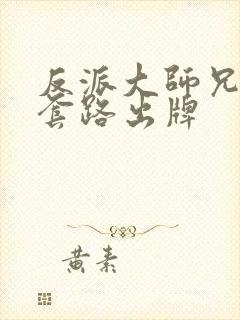 反派大師兄
套路出牌
黄素